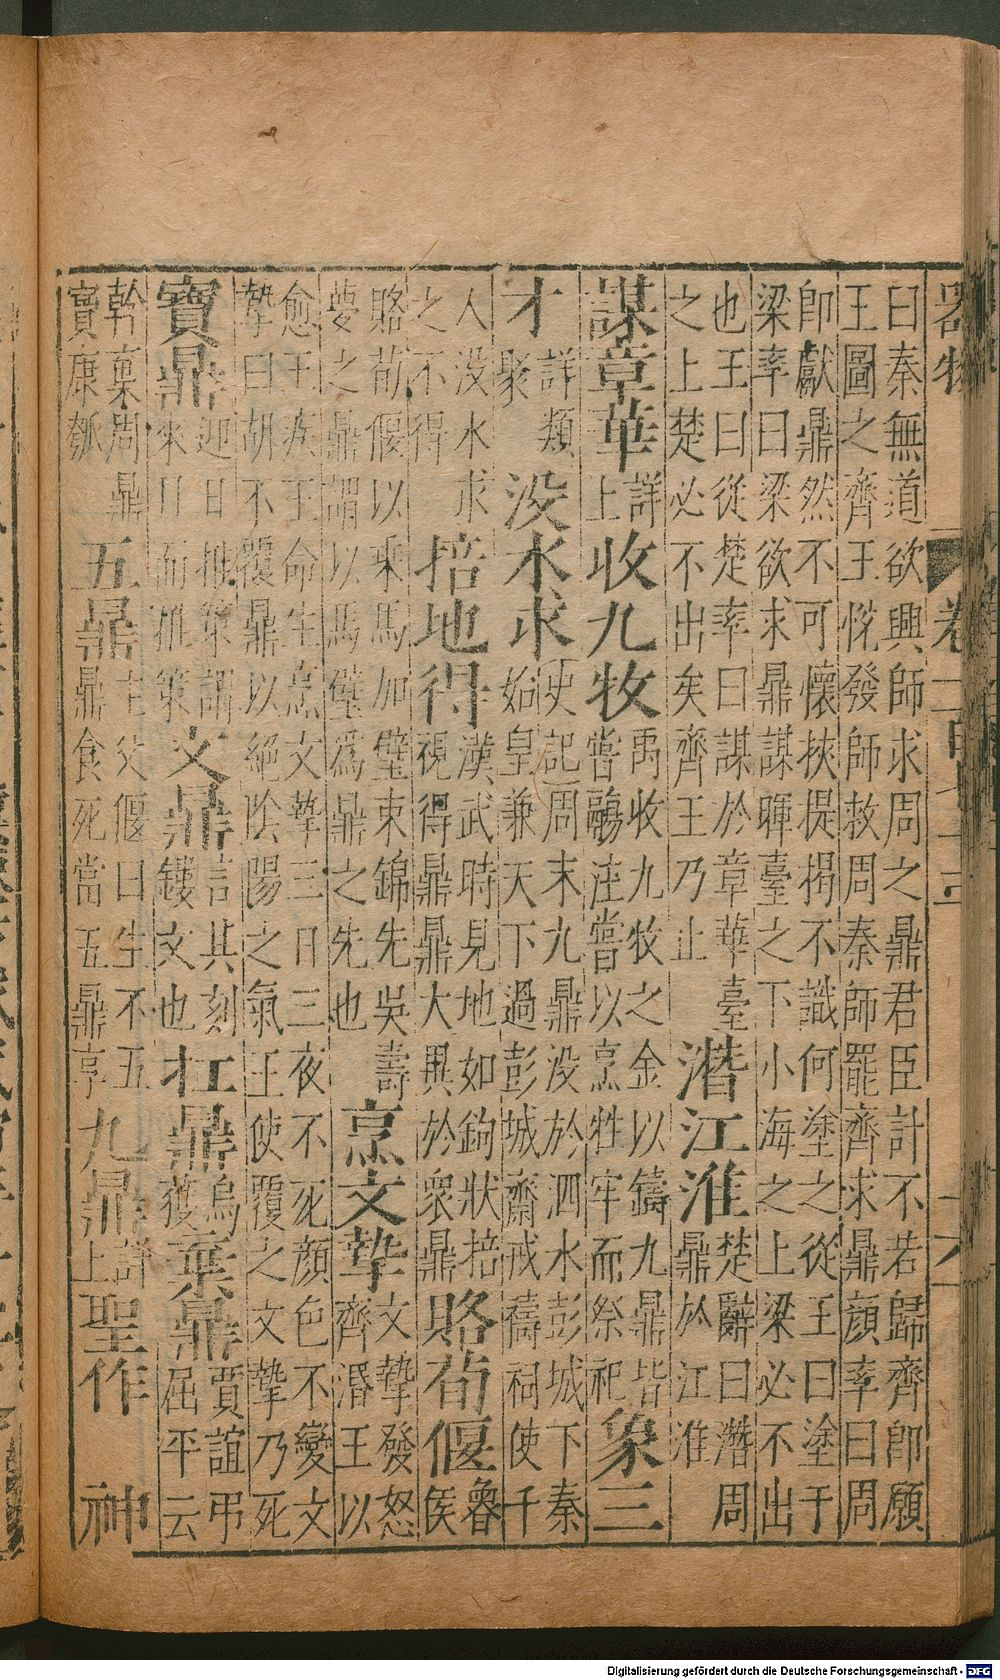 器物
曰秦無道欲興師求周之鼎君臣計不若歸齊卽願
王圖之齊王悅發師救周秦師罷齊求鼎顔率曰周
卽獻鼎然不可懷挾提揭不識何塗之從王曰塗于
梁率曰梁欲求鼎謀暉臺之下小海之上梁必不出
也王曰從楚率曰謀於章華臺
之上楚必不出矣齊王乃止
潛江淮
楚辭曰潛周
鼎於江淮
謀章華
詳
上
收九牧
禹收九牧之金以鑄九鼎皆
嘗鬺注嘗以烹牲牢而祭祀
象三
才
詳類
聚
没水求
史記周末九鼎没於泗水彭城下秦
始皇兼天下過彭城齋戒禱祠使千
人没水求
之不得
掊地得
漢武時見地如鉤狀掊
視得鼎鼎大異於衆鼎
賂荀偃
魯
侯
賂荀偃以乘馬加璧束錦先吳壽
夢之鼎謂以馬璧爲鼎之先也
烹文摯
文摯發怒
齊湣王以
愈王疾王命生烹文摯三日三夜不死顔色不變文
摯曰胡不覆鼎以絕陰陽之氣王使覆之文摯乃死
寶鼎
迎日推策謂
來日而推策
文鼎
言其刻
鏤文也
扛鼎
烏
獲
棄鼎
賈誼弔
屈平云
斡棄周鼎
寶康瓠
五鼎
主父偃曰生不五
鼎食死當五鼎亨
九鼎
詳
上
聖作
神
Digitalisierung gefördert durch die Deutsche Forschungsgemeinschaft - DFG